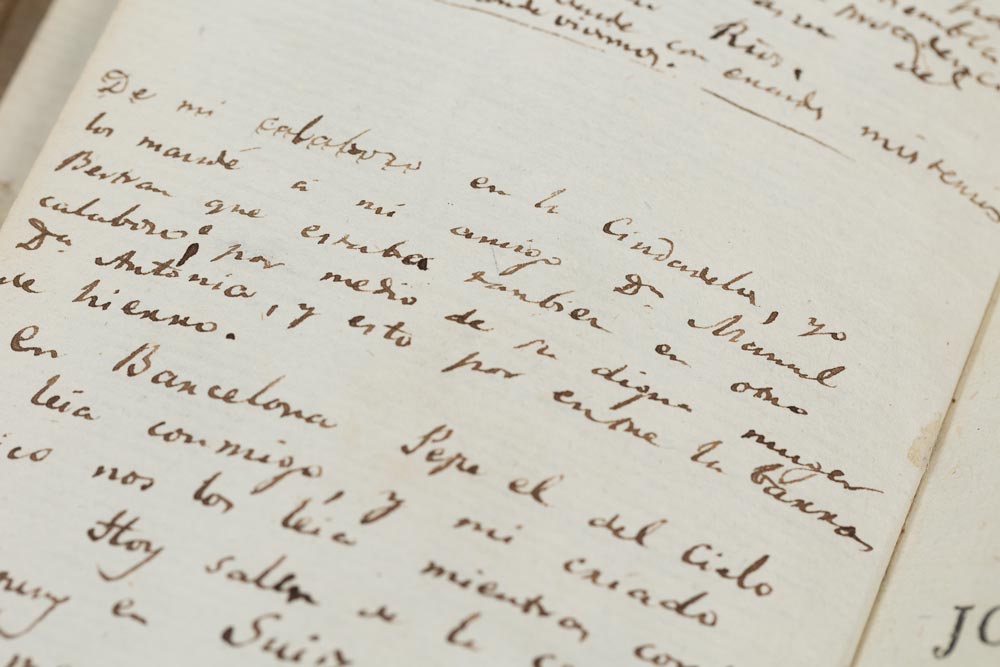 Rios. del
donde vivimos. con
De mi calabozo en la Ciudadela, yo
los mandé á mi amigo Dn Manuel
Bertran que estaba tambien en otro
calabozo por medio de su digna muger
Da Antonia, y esto por entre la barras
de hierro.
en Barcelona Pepe el del Cielo
leia conmigo, y mi criado
ico nos los leia mientras co
Hoy salen de la c
en Suiz
JO